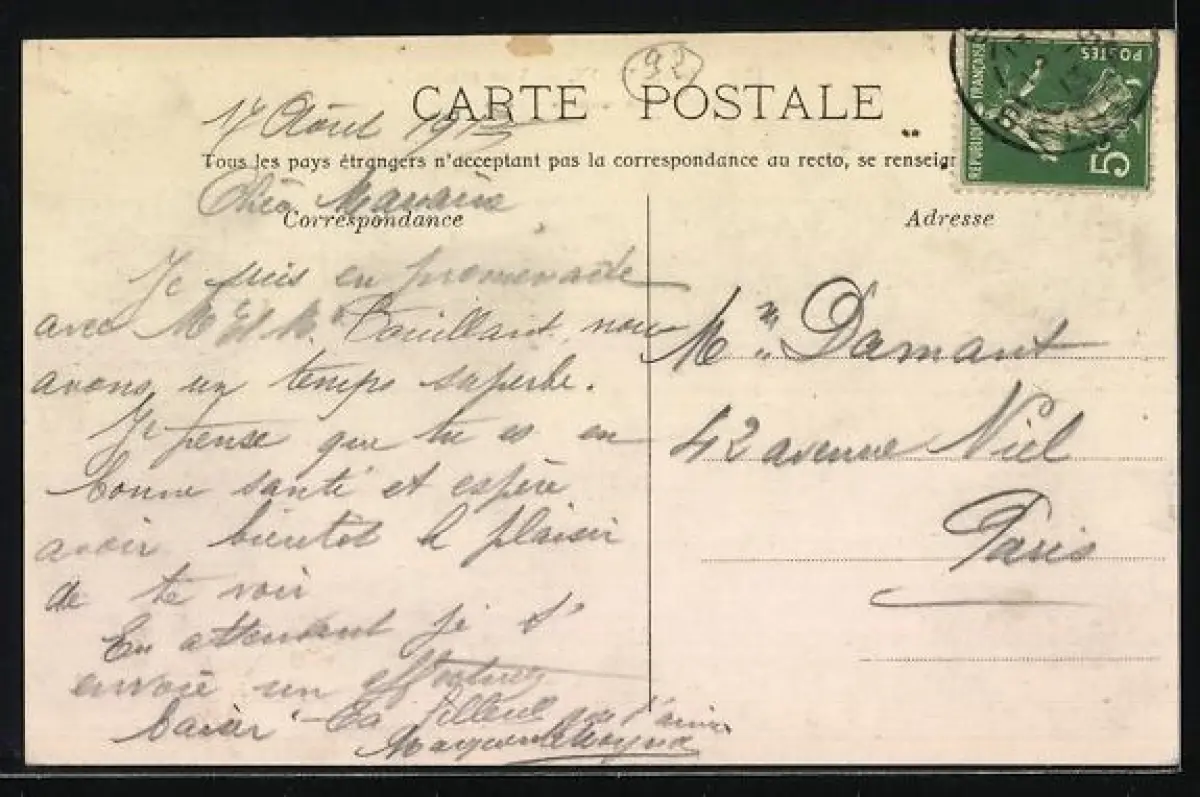 92
CARTE POSTALE
17 Août
Tous les pays étrangers n'acceptant pas la correspondance au recto, se renseign
Marraine
Correspondance
Je suis en promenade
avec Mr et Mme Bouillant, nous
avons un temps superbe.
Je pense que tu es en
bonne santé et espère
avoir bientôt le plaisir
de te voir
En attendant je t'
envoie un affectueux
baiser Ta filleule qui t'aime
Adresse
Mme Damant
42 avenue Niel
Paris
REPUBLIQUE FRANÇAISE
POSTES
5c